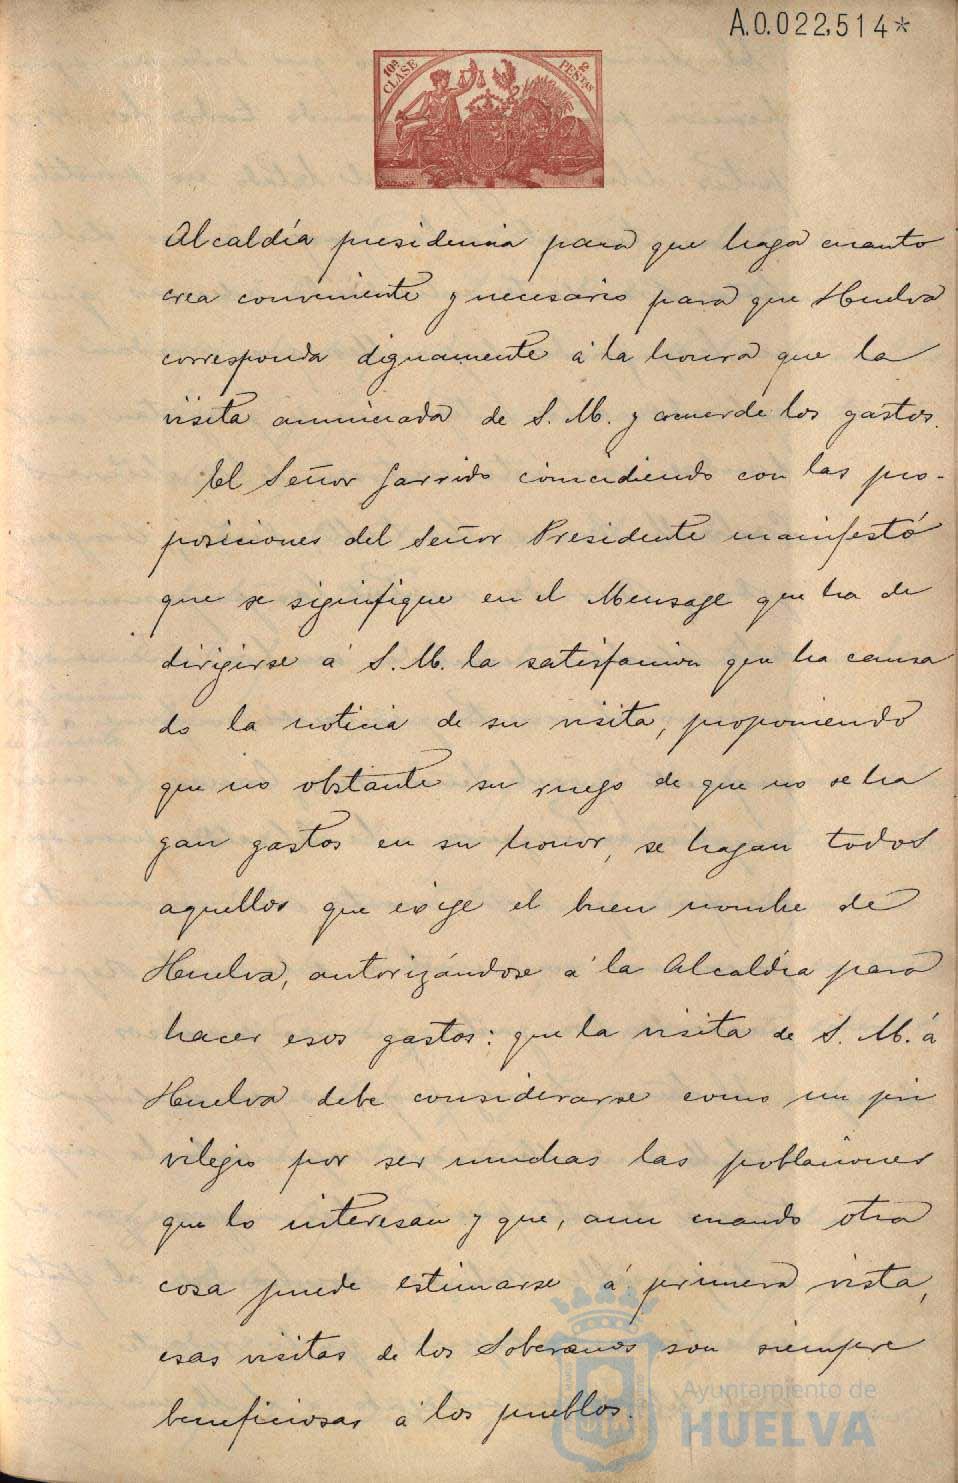 A.0.022,514*
10ª CLASE
2 PESETAS
Alcaldía presidencia para que haga cuanto
crea conveniente y necesario para que Huelva
corresponda dignamente á la honra que la
visita anunciada de S. M. y acuerde los gastos.
El Señor Garrido coincidiendo con las pro-
posiciones del Señor Presidente manifestó
que se signifique en el Mensage que ha de
dirigirse á S. M. la satisfaccion que ha causa
do la noticia de su visita, proponiendo
que no obstante su ruego de que no se ha
gan gastos en su honor, se hagan todos
aquellos que exige el buen nombre de
Huelva, autorizándose á la Alcaldía para
hacer esos gastos: que la visita de S. M. á
Huelva debe considerarse como un pri
vilegio por ser muchas las poblaciones
que lo interesan y que, aun cuando otra
cosa puede estimarse á primera vista,
esas visitas de los Soberanos son siempre
beneficiosas á los pueblos.
Ayuntamiento de
HUELVA